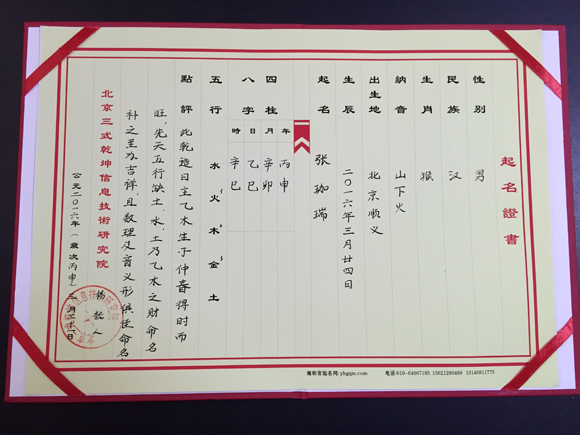 起名證書
性别 男
民族 汉
生肖 猴
納音 山下火
出生地 北京顺义
生辰 二〇一六年三月廿四日
起名 张珈瑞
四柱 年 月 日 時
八字 丙申 辛卯 乙巳 辛巳
五行 水 火 木 金 土
點評 此乾造日主乙木生于仲春得时而
旺，先天五行缺土、水，土乃乙木之财命名
补之至为吉祥，且数理及音义形俱佳命名
北京三式乾坤信息技術研究院
公元二〇一六年（歲次丙申）
雍和宫起名网:yhgqm.com 电话:010-64067195 13621280499 13146811775